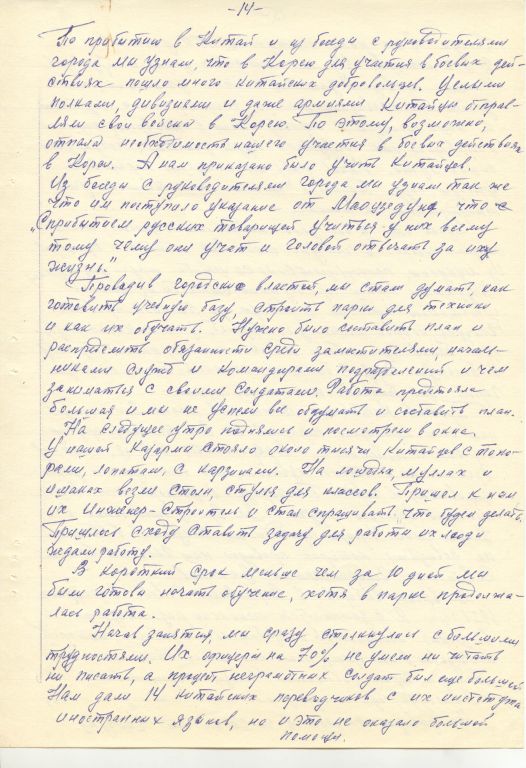 -14-
По прибытию в Китай и из бесед с руководителями
города мы узнали, что в Корею для участия в боевых дей-
ствиях пошло много китайских добровольцев. Целыми
полками, дивизиями и даже армиями Китайцы отправ-
ляли свои войска в Корею. По этому, возможно,
отпала необходимость нашего участия в боевых действиях
в Корее. А нам приказано было учить Китайцев.
Из бесед с руководителями города мы узнали так же
что им поступило указание от Маоцзедуна, что „С
прибытием русских товарищей учиться у них всему
тому чему они учат и головой отвечать за их
жизнь."
Проводив городские властей, мы стали думать, как
готовить учебную базу, строить парки для техники
и как их обучать. Нужно было составить план и
распределить обязанности среди заместителями, началь-
никами служб и командирами подразделений и чем
заниматься с своими солдатами. Работа предстояла
большая и мы не успели все обдумать и составить план.
На следущее утро поднялись и посмотрели в окна.
У нашей казармы стояло около тысячи китайцев с топо-
рами, лопатами, с карзинами. На лошадях, муллах и
ишаках везли столы, стулья для классов. Пришел к нам
их Инженер-строитель и стал спрашивать. Что будем делать.
Пришлось сходу ставить задачу для работы их люди
ждали работу.
В короткий срок меньше чем за 10 дней мы
были готовы начать обучение, хотя в парке продолжа-
лась работа.
Начав занятия, мы сразу столкнулись с большими
трудностями. Их офицеры на 70% не умели ни читать
ни писать, а процент неграмотных солдат был еще больше.
Нам дали 14 китайских переводчиков с их института
иностранных языков, но и это не оказало большой
помощи.